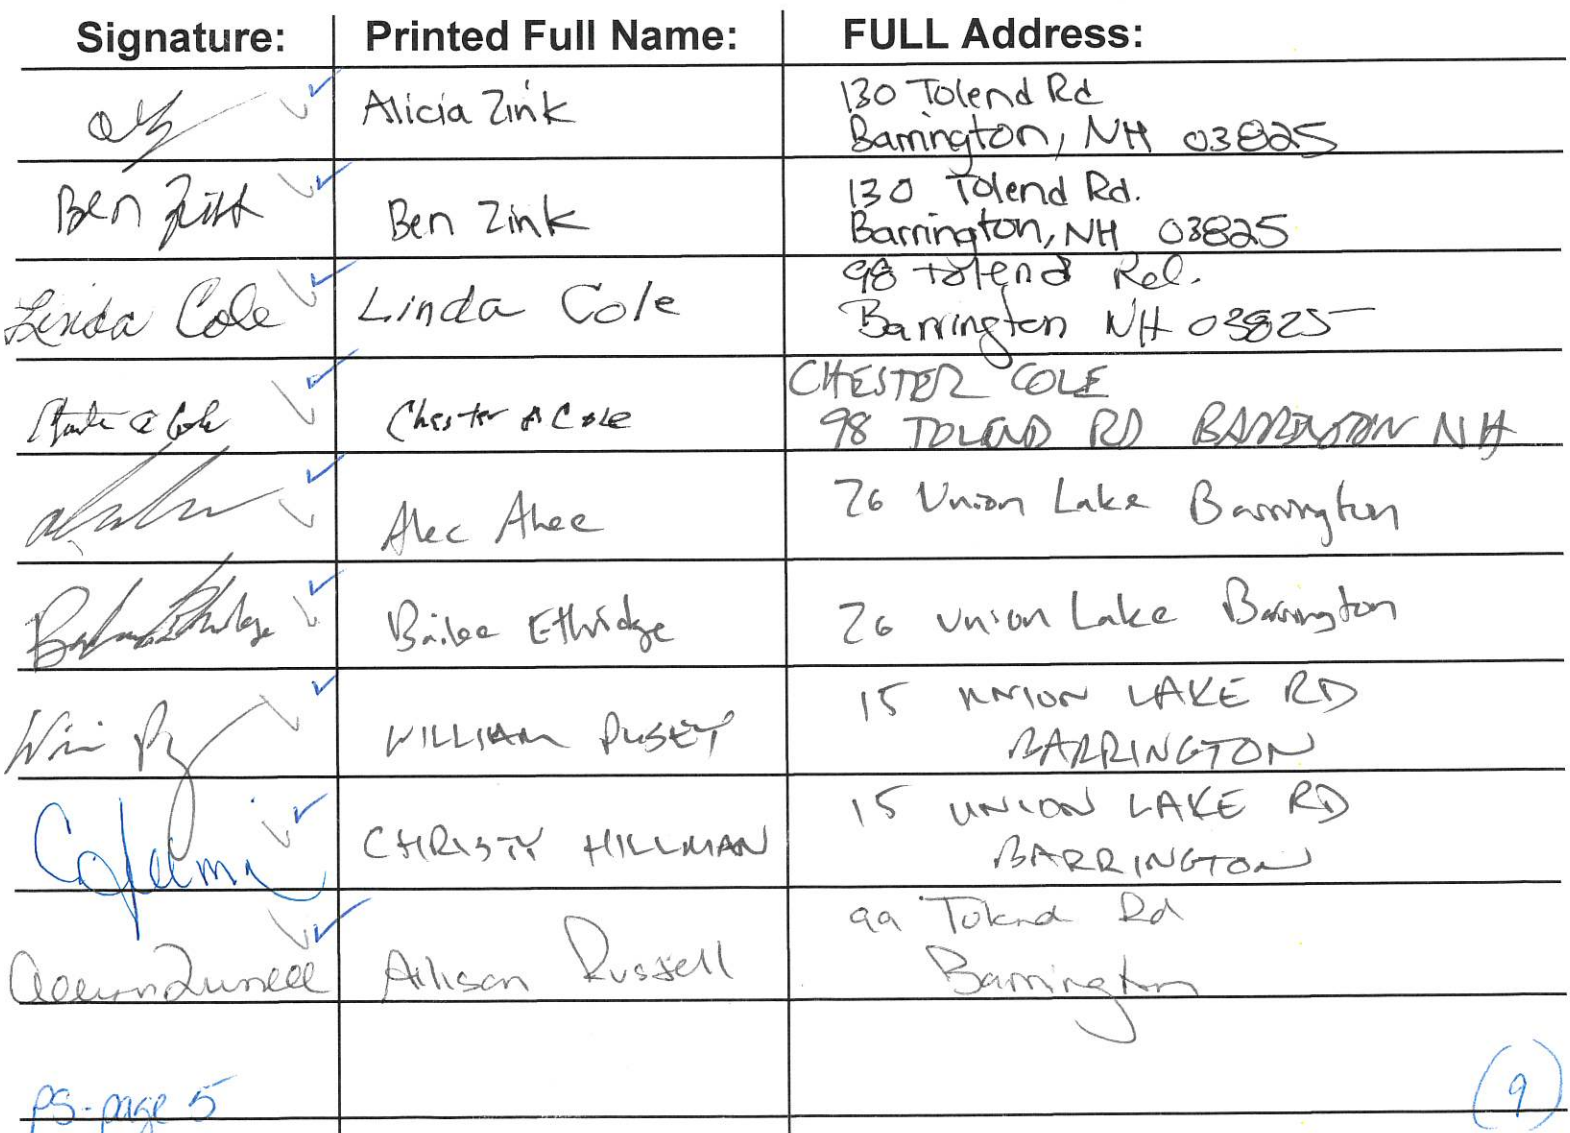 Signature: Printed Full Name: FULL Address:
Alicia Zink 130 Tolend Rd
Barrington, NH 03825
Ben Zink Ben Zink 130 Tolend Rd.
Barrington, NH 03825
Linda Cole Linda Cole 98 Tolend Rd.
Barrington NH 03825
Chester A Cole CHESTER COLE
98 TOLEND RD BARRINGTON NH
Alec Ahee 26 Union Lake Barrington
Bailee Ethridge 26 Union Lake Barrington
WILLIAM PUSEY 15 UNION LAKE RD
BARRINGTON
CHRISTY HILLMAN 15 UNION LAKE RD
BARRINGTON
Allison Russell Allison Russell 99 Tolend Rd
Barrington
PS-page 5 9